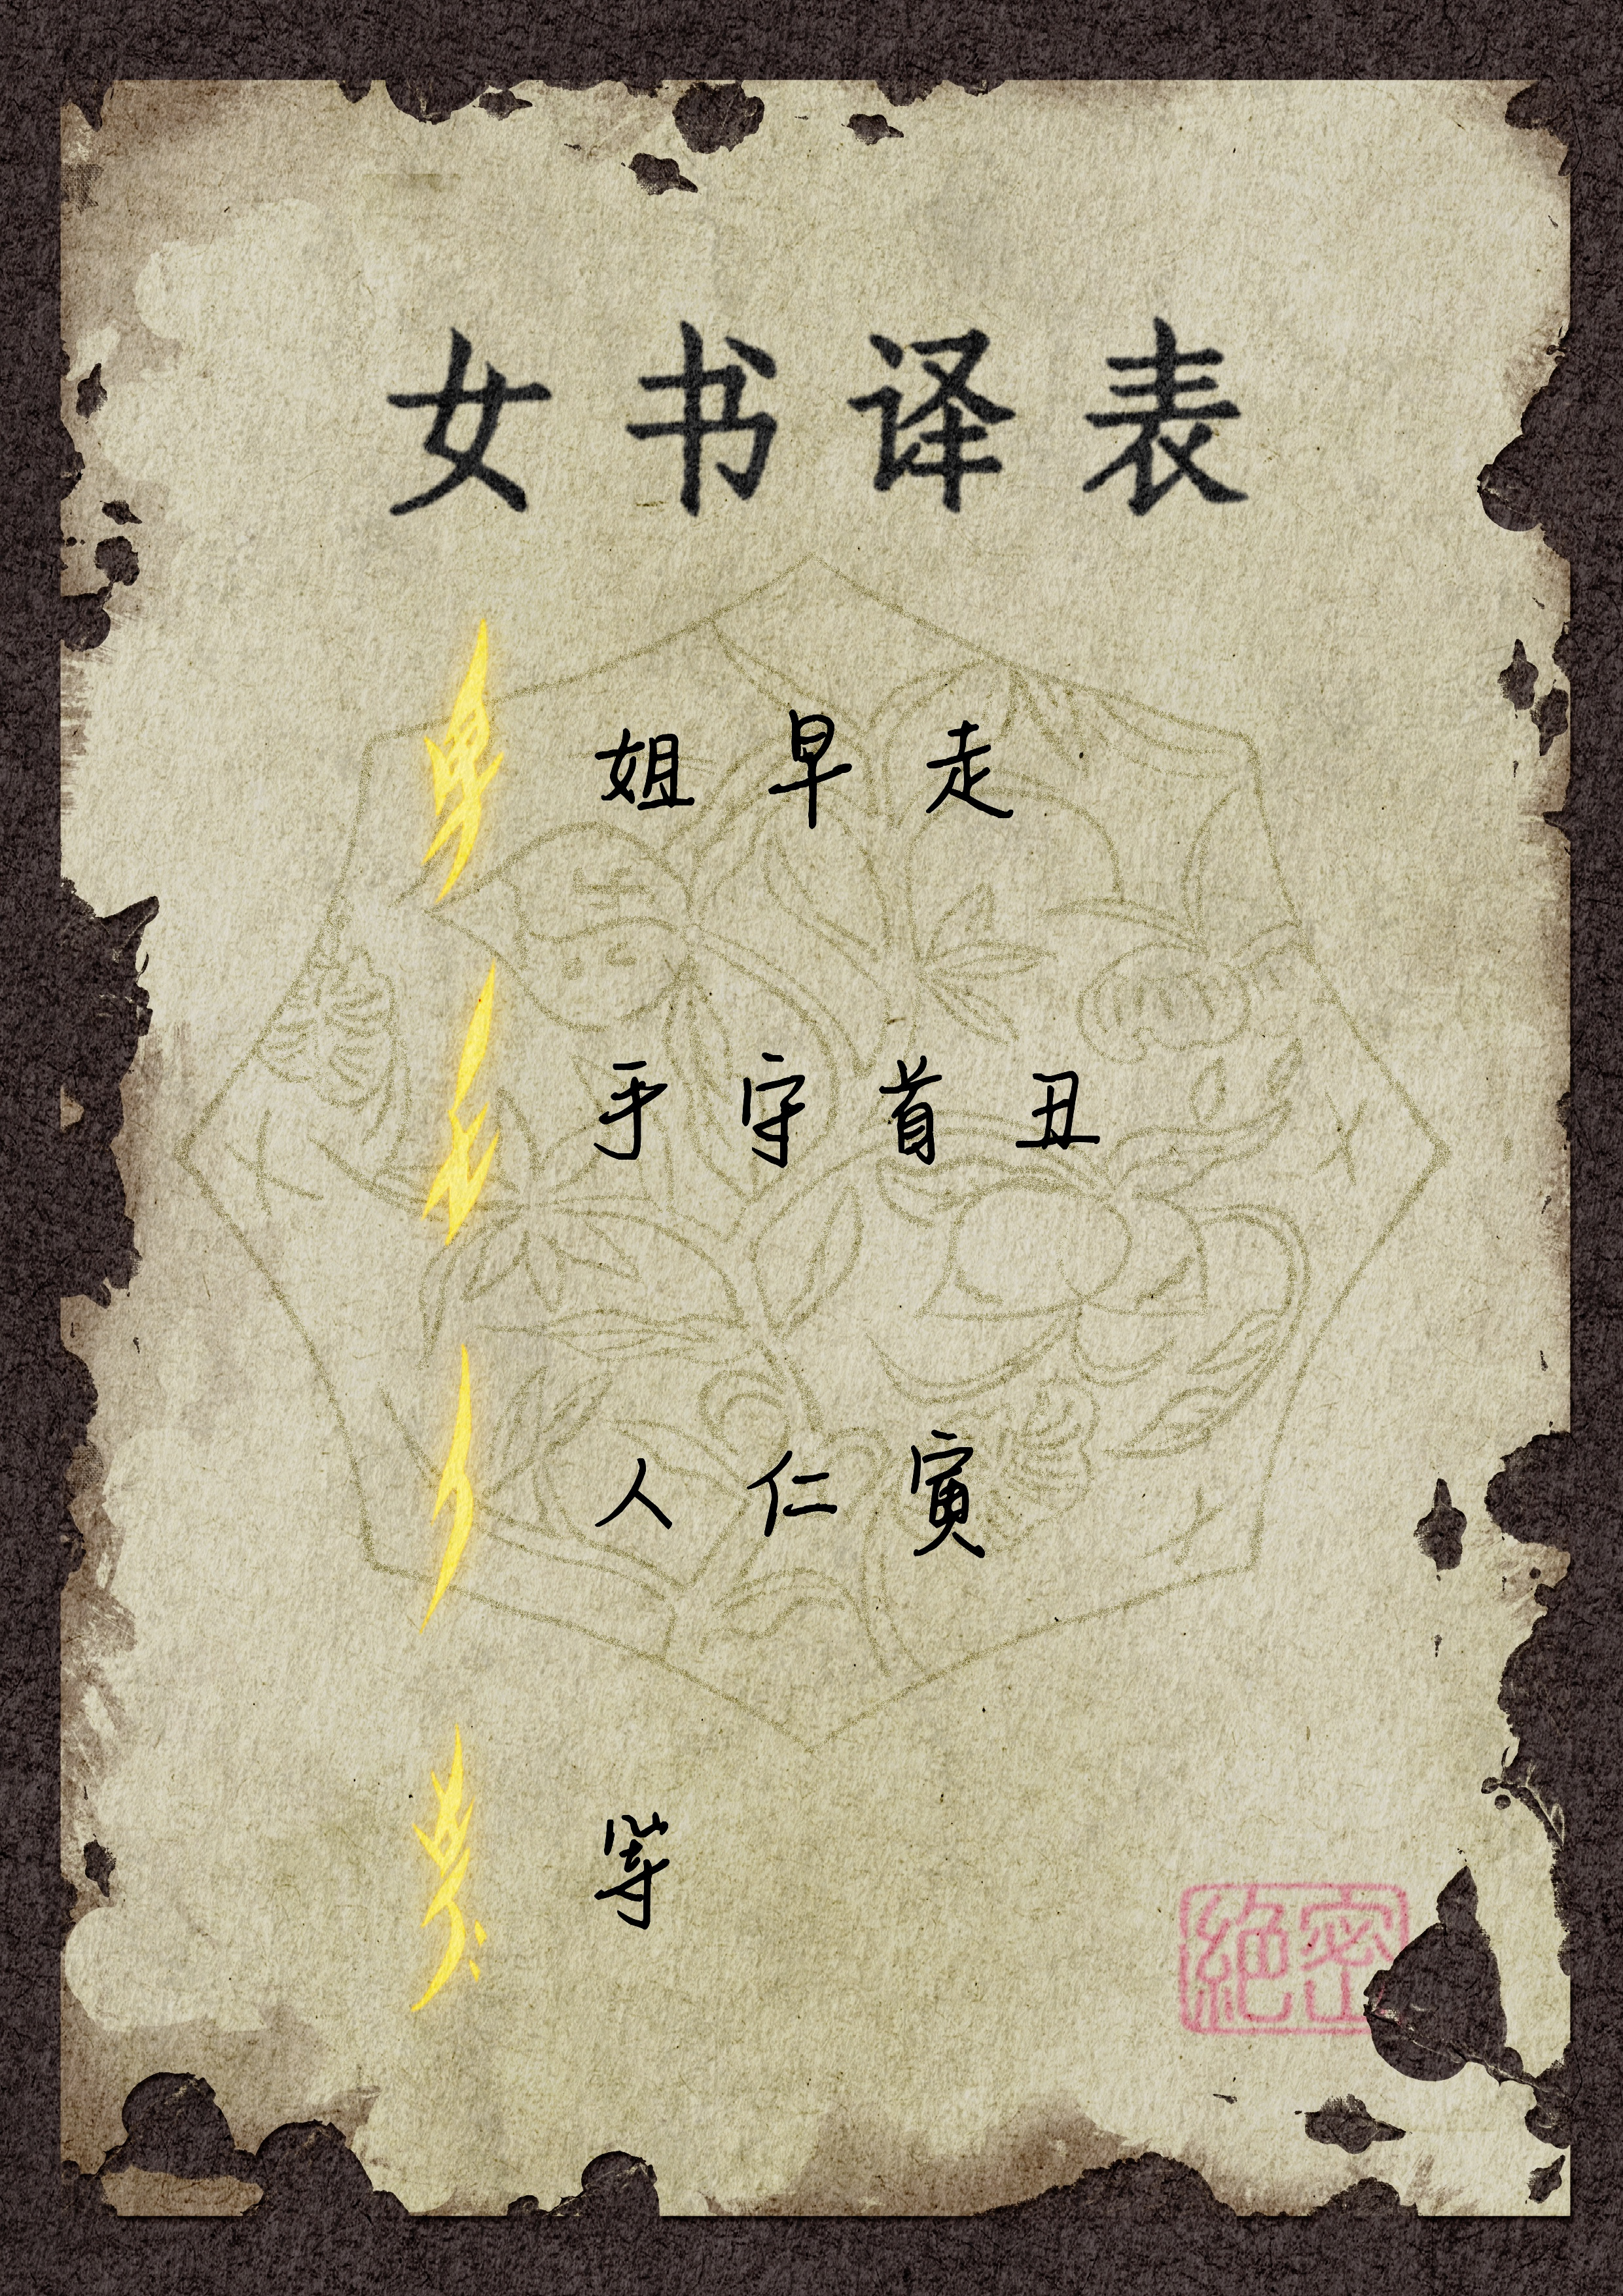 女书译表
姐 早 走
手 守 首 丑
人 仁 寅
等
絕密